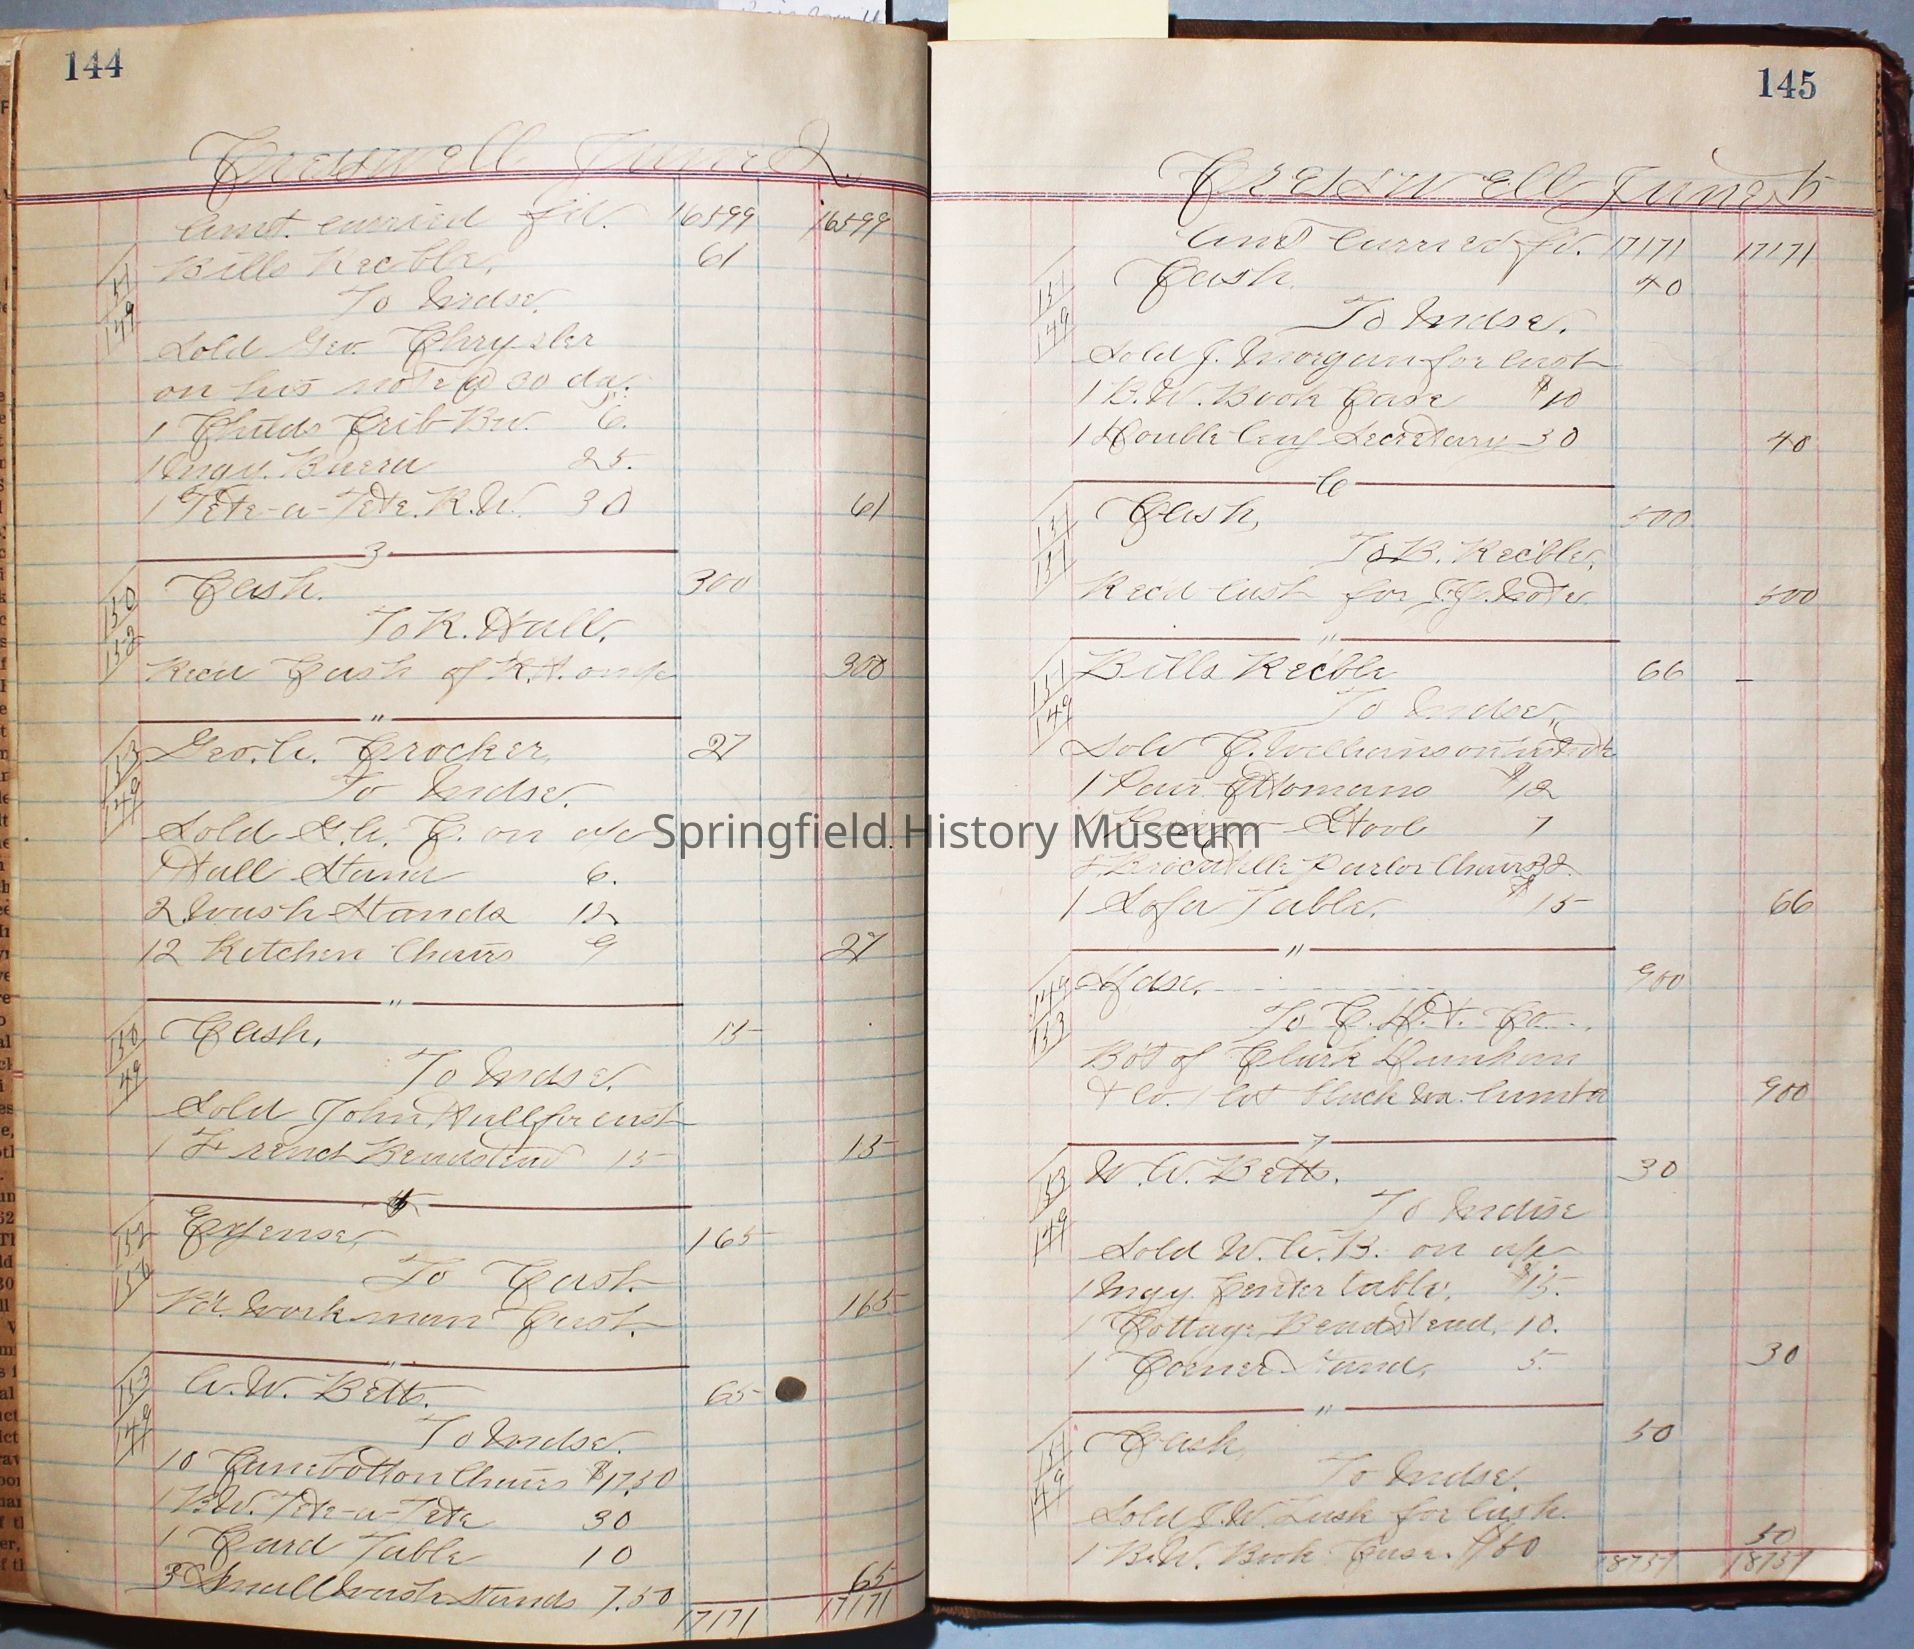 144
Creswell June 2.
Amt. carried f'd. 16599 16599
Bills Rec'ble, 61
151
149
To Mdse.
Sold Geo. Chrysler
on his note @ 30 da.
1 Childs Crib B.W. 6.
1 Mogy. Bureau 25.
1 Tete-a-Tete R.W. 30 61
3
150
152
Cash. 300
To R. Hall.
Rec'd Cash of R.H. on a/c 300
"
153
149
Geo. A. Crocker, 27
To Mdse.
Sold G.A. C. on a/c
Hall Stand 6.
2 Wash Stands 12
12 Kitchen Chairs 9 27
"
150
149
Cash, 15
To Mdse.
Sold John Hull for cash
1 French Beadstead 15 15
Expense, 165
To Cash.
P'd. workmen Cash. 165
"
153
149
A. W. Betts. 65
To Mdse.
10 Canebotton Chairs $17.50
1 B.W. Tete-a-Tete 30
1 Card Table 10
3 Small Wash Stands 7.50 65
17171 17171
145
Creswell June 5
Amt carried f'd. 17171 17171
151
149
Cash. 40
To Mdse.
Sold J. Morgan for cash
1 B.W. Book Case $10
1 Double leaf Secretary 30 40
6
151
151
Cash, 500
To B. Rec'ble,
Rec'd cash for J.J. Note. 500
"
151
149
Bills Rec'ble 66
To Mdse.
Sold C. Williams on
1 Pair Ottomans $12
Stool 7
8 Brocatelle Parlor Chairs 32.
1 Sofa Table. $15 66
"
149
153
Mdse. 900
To C. D. & Co.
B'ot of Clark Dunham
& Co. 1 lot black wa. lumber 900
7
153
149
W. A. Betts. 30
To Mdise
Sold W. A. B. on a/c
1 Mogy Center table, $15.
1 Cottage Beadstead, 10.
1 Corner Stand, 5. 30
"
151
149
Cash, 50
To Mdse.
Sold J. W. Lusk for cash.
1 B.W. Book Case. $50 50
18757 18757
Springfield History Museum